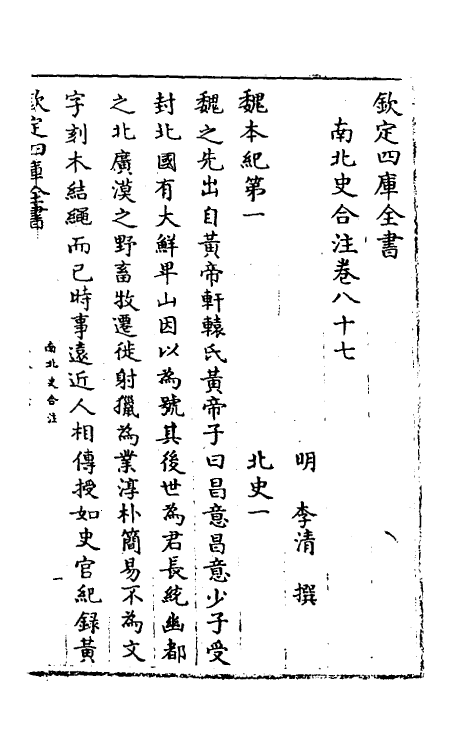 欽定四庫全書
南北史合注卷八十七
明 李清 撰
魏本紀第一 北史一
魏之先出自黃帝軒轅氏黃帝子曰昌意昌意少子受
封北國有大鮮卑山因以為號其後世為君長統幽都
之北廣漠之野畜牧遷徙射獵為業淳朴簡易不為文
字刻木結繩而已時事遠近人相傳授如史官紀録黃
欽定四庫全書
南北史合注
一